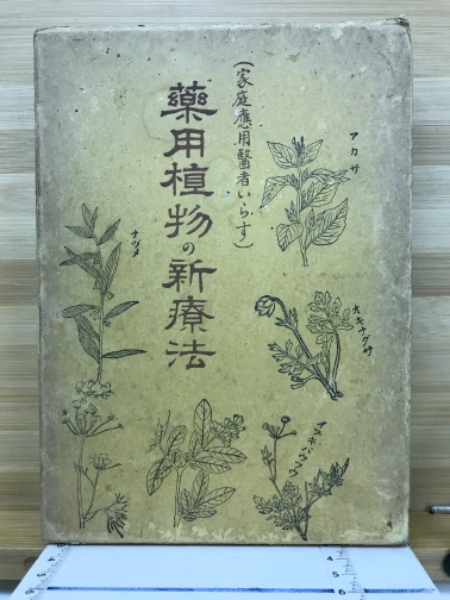 (家庭應用醫者いらず)
藥用植物の新療法
アカザ
ナツメ
オキナグサ
4
5
6